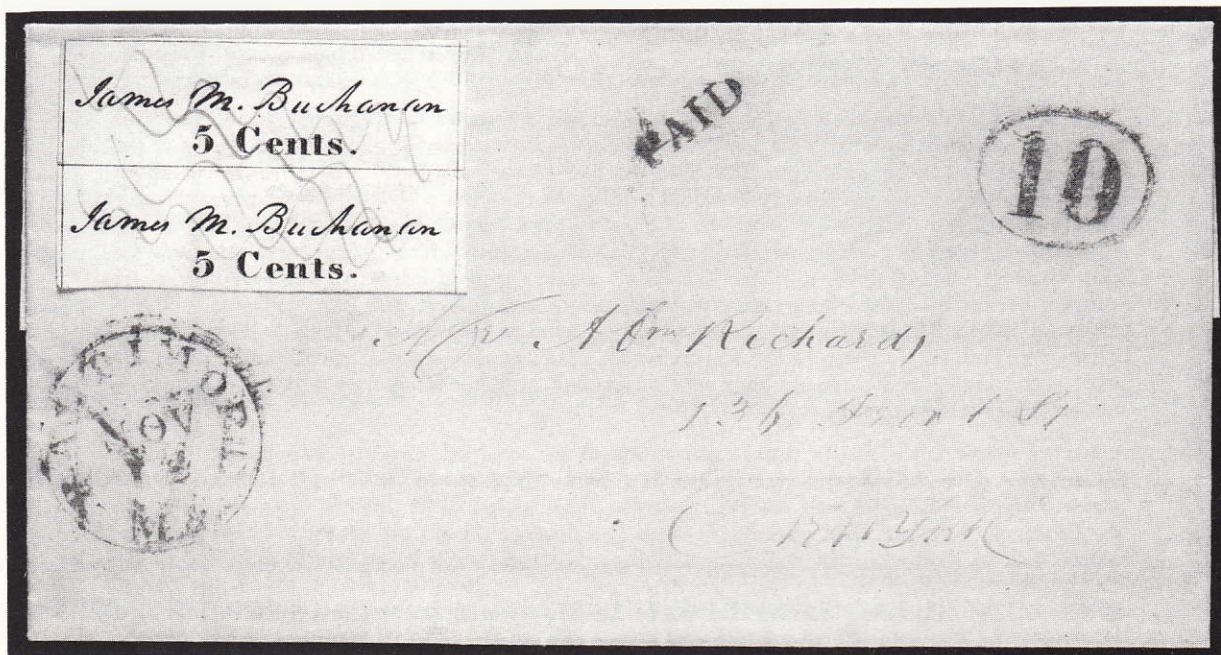 James M. Buchanan
5 Cents.
James M. Buchanan
5 Cents.
PAID
10
BALTIMORE
NOV
Md
Richards
136 Front St
New York